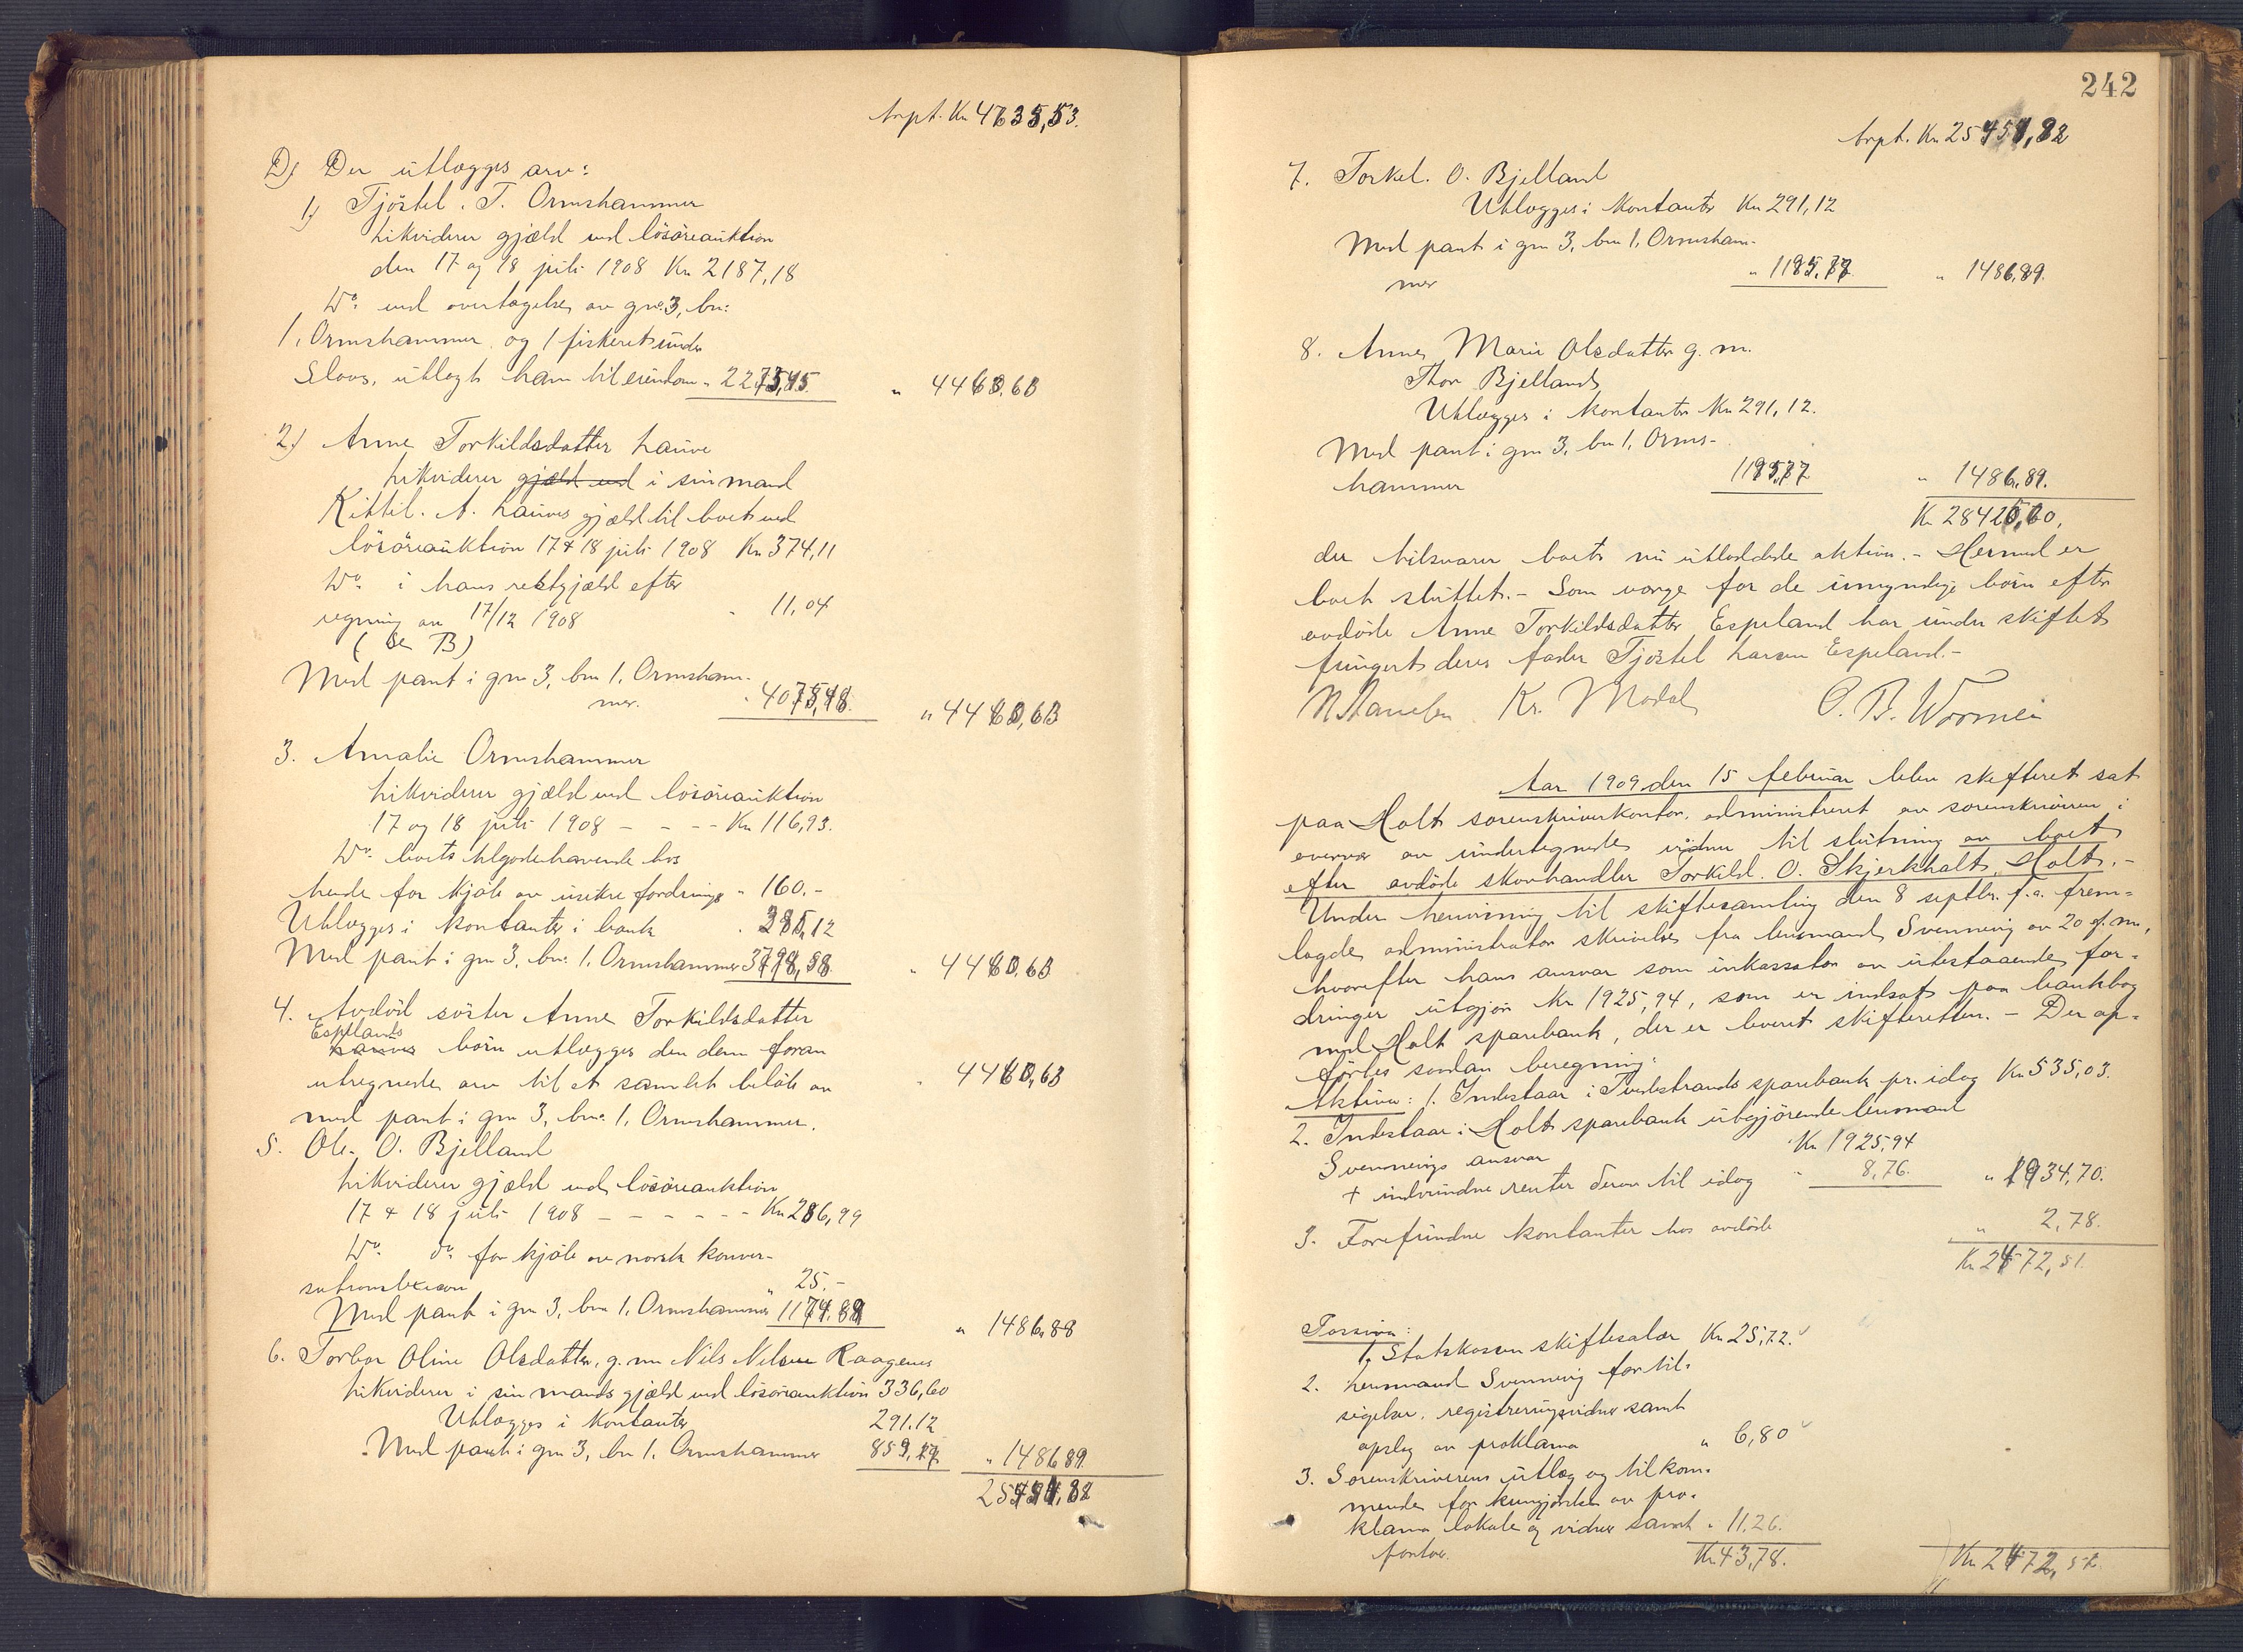 Trpt. Kr. 4635,53.
D) Der utlægges arv:
1) Tjöstel. T. Ormshammer
Likviderer gjæld ved lösöreauktion
den 17 og 18 juli 1908 Kr. 2187,18
Do. ved overtagelse av gno. 3, bn.
1, Ormshammer og 1 fiskeret under
utlagt ham til eiendom „ 2273,45 „ 4460,63
2) Anne Torkildsdatter Lauve
Likviderer gjæld ved i sin mand
Kittil. A. Lauves gjæld til boet ved
lösöreauktion 17 & 18 juli 1908 Kr. 374,11
Do. i hans restgjæld efter
regning av 17/12 1908 „ 11,04
(Se B)
Med pant i gno 3, bno 1, Ormsham-
mer. „ 4075,48. „ 4460,63
3. Amalie Ormshammer
Likviderer gjæld ved lösöreauktion
17 og 18 juli 1908 - - - - Kr. 116,93.
Do. boets tilgodehavende hos
hende for kjöb av usikre fordring „ 160.-
Utlægges i kontanter i bank
Med pant i gno 3, bno. 1, Ormshammer „ 4460,63
4. Avdöd söster Anne Torkildsdatter
Espelands
Lauves börn utlægges den dem foran
utregnede arv til et samlet belöb av „ 4460,63
med pant i gno 3, bno. 1, Ormshammer.
5. Ole. O. Bjelland
Likviderer gjæld ved lösöreauktion
17 & 18 juli 1908 - - - - - - Kr. 286,99
Do. do. for kjöb av norsk konver-
sationslexicon „ 25.-
Med pant i gno 3, bno 1, Ormshammer 1174.89 „ 1486,88
6. Torbor Oline Olsdatter, g. m. Nils Nilsen Raagenes
Likviderer i sin mands gjæld ved lösöreauktion 336,60
Utlægges i kontanter 291.12
Med pant i gno 3, bn 1, Ormshammer 859,17 „ 1486,89
242
7. Torkel. O. Bjelland
Utlægges i kontanter Kr. 291,12
Med pant i gno 3, bno 1, Ormsham-
mer „ 1195,77 „ 1486,89.
8. Anne Marie Olsdatter g. m.
Thor Bjelland
Utlægges i kontanter Kr. 291,12.
Med pant i gno 3, bno 1, Orms-
hammer 1195,77 „ 1486,89.
der tilsvarer boets nu utloddede aktiva.- Hermed er
boet sluttet.- Som værge for de umyndige börn efter
avdöde Anne Torkildsdatter Espeland har under skiftet
fungert deres fader Tjöstel Larsen Espeland.-
Kr. Modal
Aar 1909 den 15 februar blev skifteret sat
paa Holt sorenskriverkontor, administreret av sorenskriveren i
overvær av undertegnede vidner til slutning av boet
efter avdöde skovhandler Torkild. O. Skjerkholt, Holt.-
Under henvisning til skiftesamling den 8 septbr. f. a. frem-
lagde administrator skrivelse fra lensmand Svenneng av 20 f. m.,
hvorefter hans ansvar som inkassator av utestaaende for-
dringer utgjör Kr. 1925,94, som er indsat paa bankbog
med Holt sparebank, der er leveret skifteretten.- Der op-
förtes saadan beregning:
Aktiva: 1. Indestaar i Tvedestrands sparebank pr. idag Kr. 535,03.
2. Indestaar i Holt sparebank utgjörende lensmand
Svennengs ansvar Kr. 1925,94
+ indvundne renter derav til idag „ 8,76. „ 1934,70.
3. Forefundne kontanter hos avdöde „ 2,78.
Kr. 2472,51.
Passiva:
1. Statskassen skiftesalær Kr. 25,72.
2. Lensmand Svenneng for til-
sigelser, registreringsvidner samt
opslag av proklama „ 6,80
3. Sorenskriverens utlæg og tilkom-
mende for kundgjörelse av pro-
klama lokale og vidner samt „ 11.26.
portoer. Kr. 43,78. Kr. 2472,51.